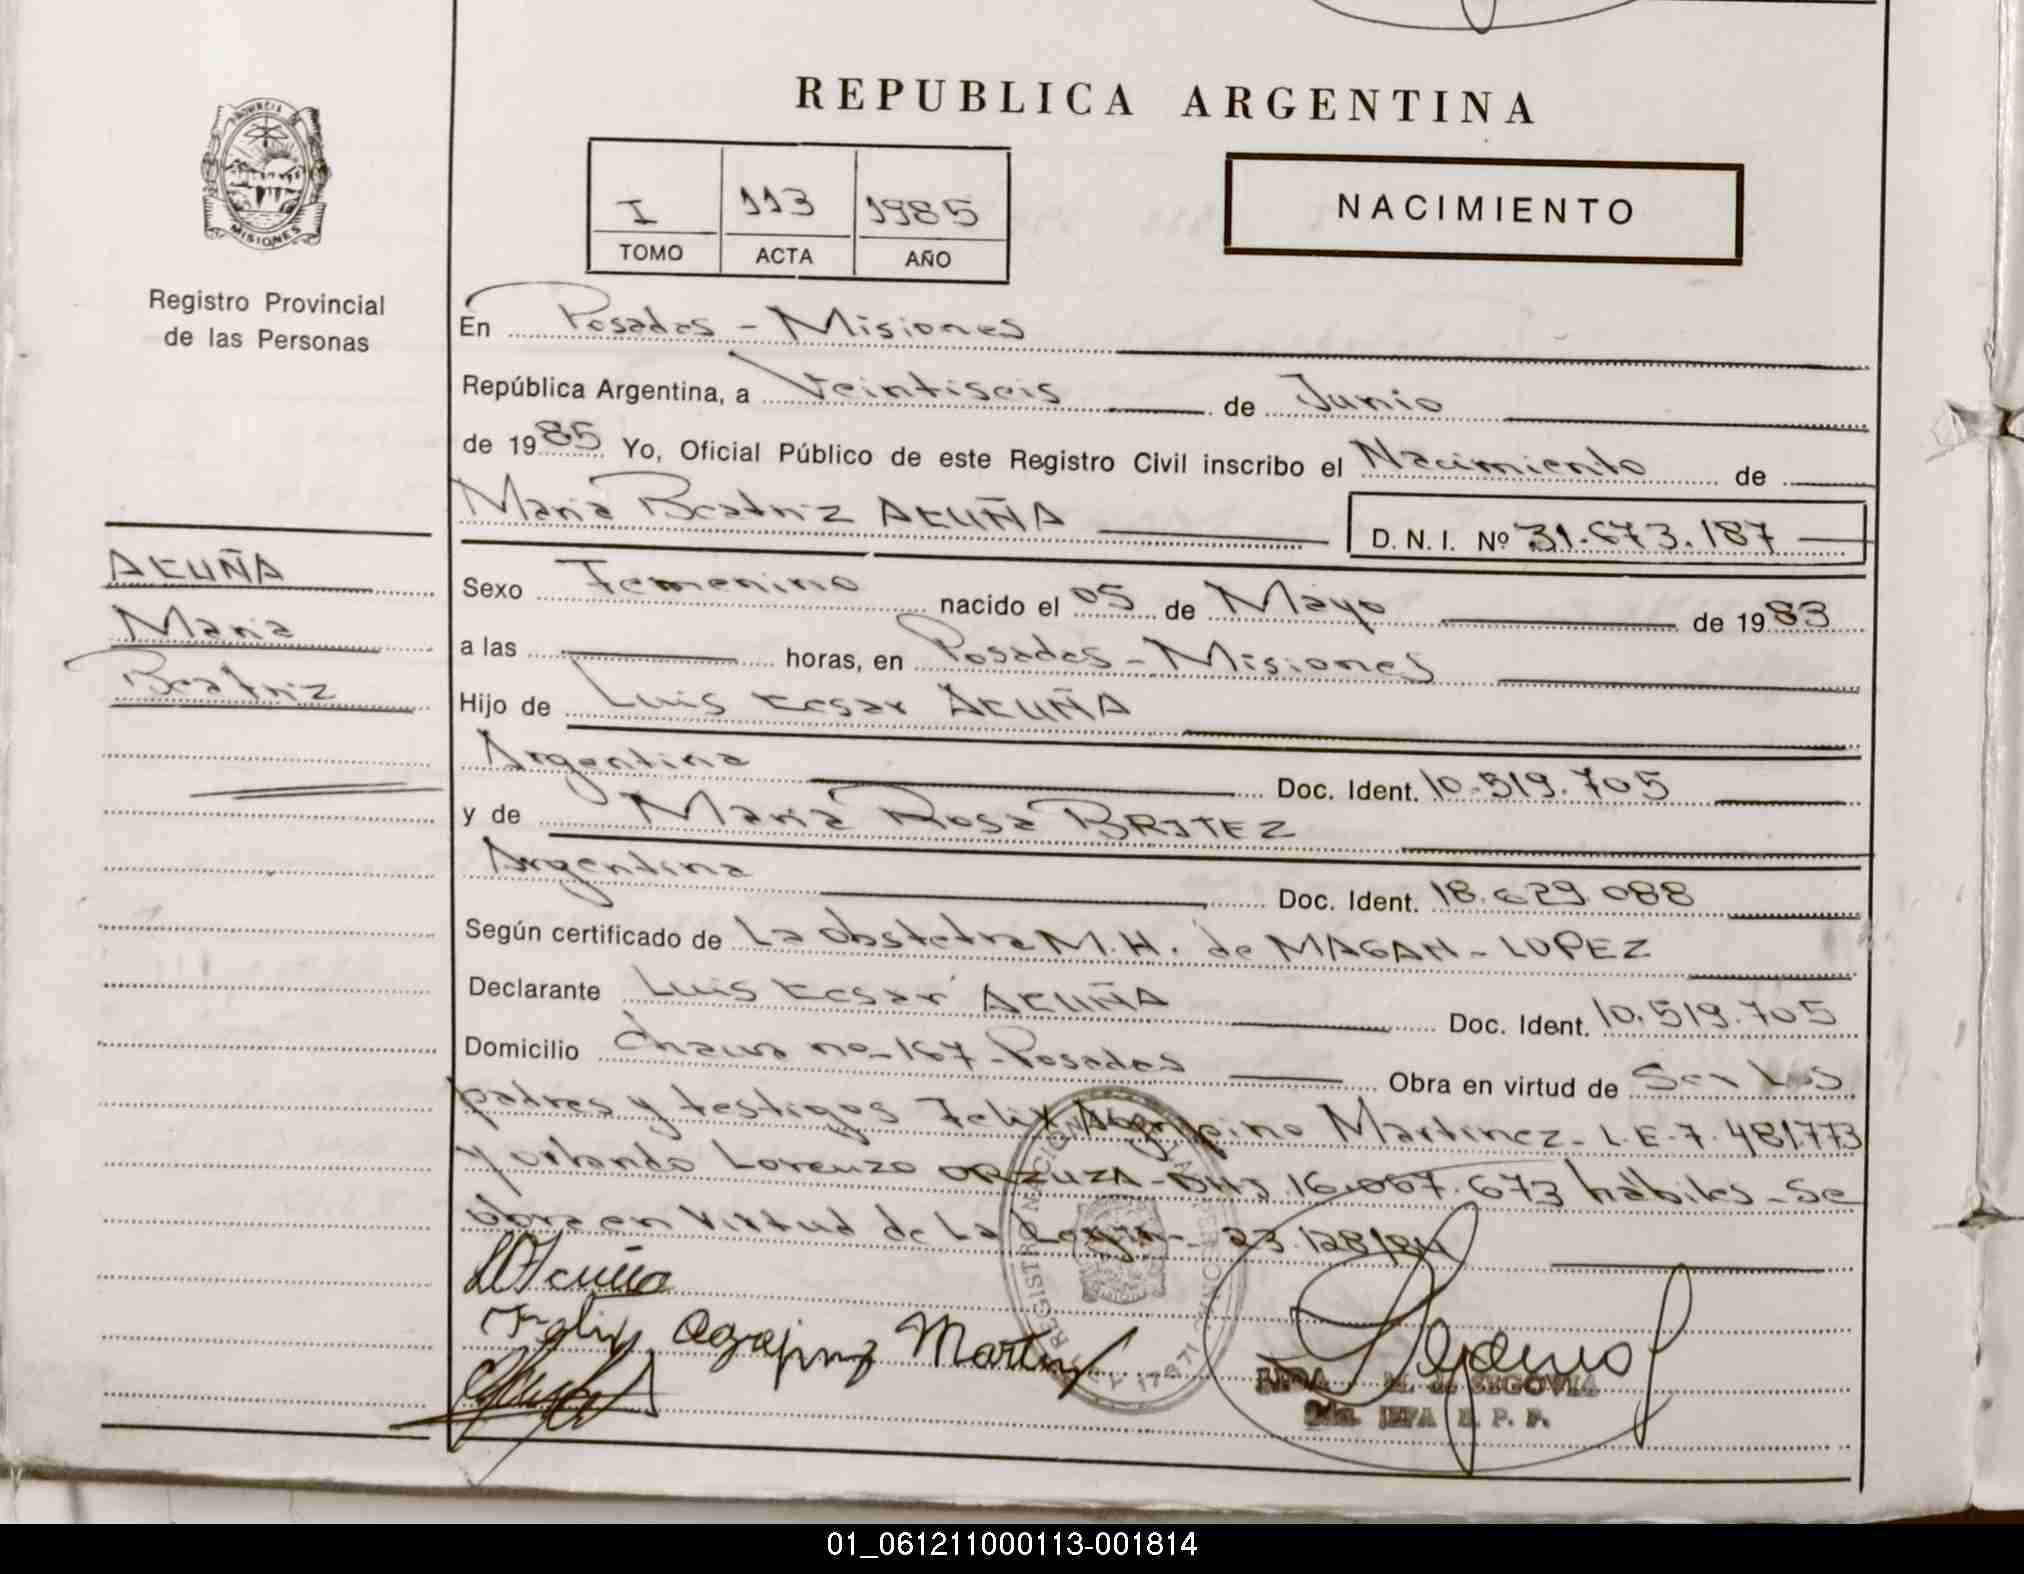 REPUBLICA ARGENTINA
PROVINCIA DE
MISIONES
Registro Provincial
de las Personas
I 113 1985
TOMO ACTA AÑO
NACIMIENTO
En Posadas - Misiones
República Argentina, a Veintiseis de Junio
de 1985 Yo, Oficial Público de este Registro Civil inscribo el Nacimiento de
Maria Beatriz ACUÑA D. N. I. Nº 31.673.187
ACUÑA
Maria
Beatriz
Sexo Femenino nacido el 05 de Mayo de 1983
a las horas, en Posadas - Misiones
Hijo de Luis Cesar ACUÑA
Argentina Doc. Ident. 10.519.705
y de Maria Rosa BRITEZ
Argentina Doc. Ident. 18.629.088
Según certificado de La obstetra M.H. de MAGAN - LOPEZ
Declarante Luis Cesar ACUÑA Doc. Ident. 10.519.705
Domicilio Chacra no - 167 - Posadas Obra en virtud de Ser los
padres y testigos Felix Agripino Martinez - L.E. 7.481773
y orlando Lorenzo ORZUZA - DNI 16.067.673 hábiles - Se
obra en virtud de La 23.128/84
Acuña
Felix Martinez
M. de SEGOVIA
2da. JEFA R. P. P.
01_061211000113-001814